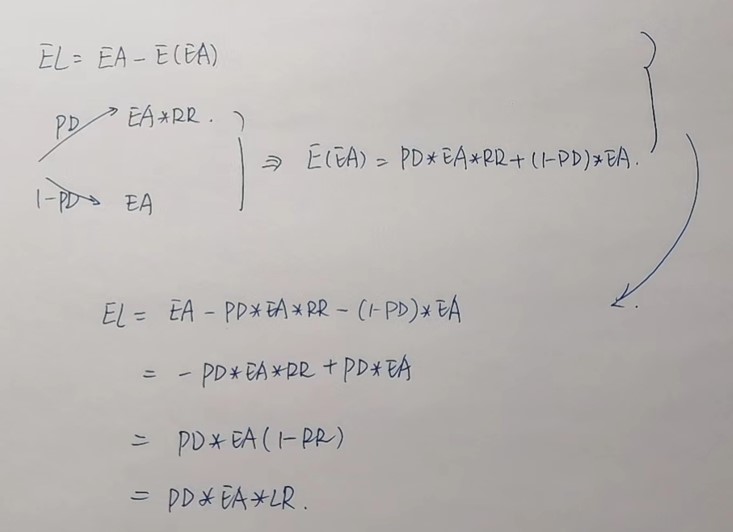 EL = EA - E(EA)
PD EA*RR.
⇒ E(EA) = PD*EA*RR+(1-PD)*EA.
1-PD EA
EL = EA - PD*EA*RR - (1-PD)*EA
= - PD*EA*RR + PD*EA
= PD*EA(1-RR)
= PD*EA*LR.